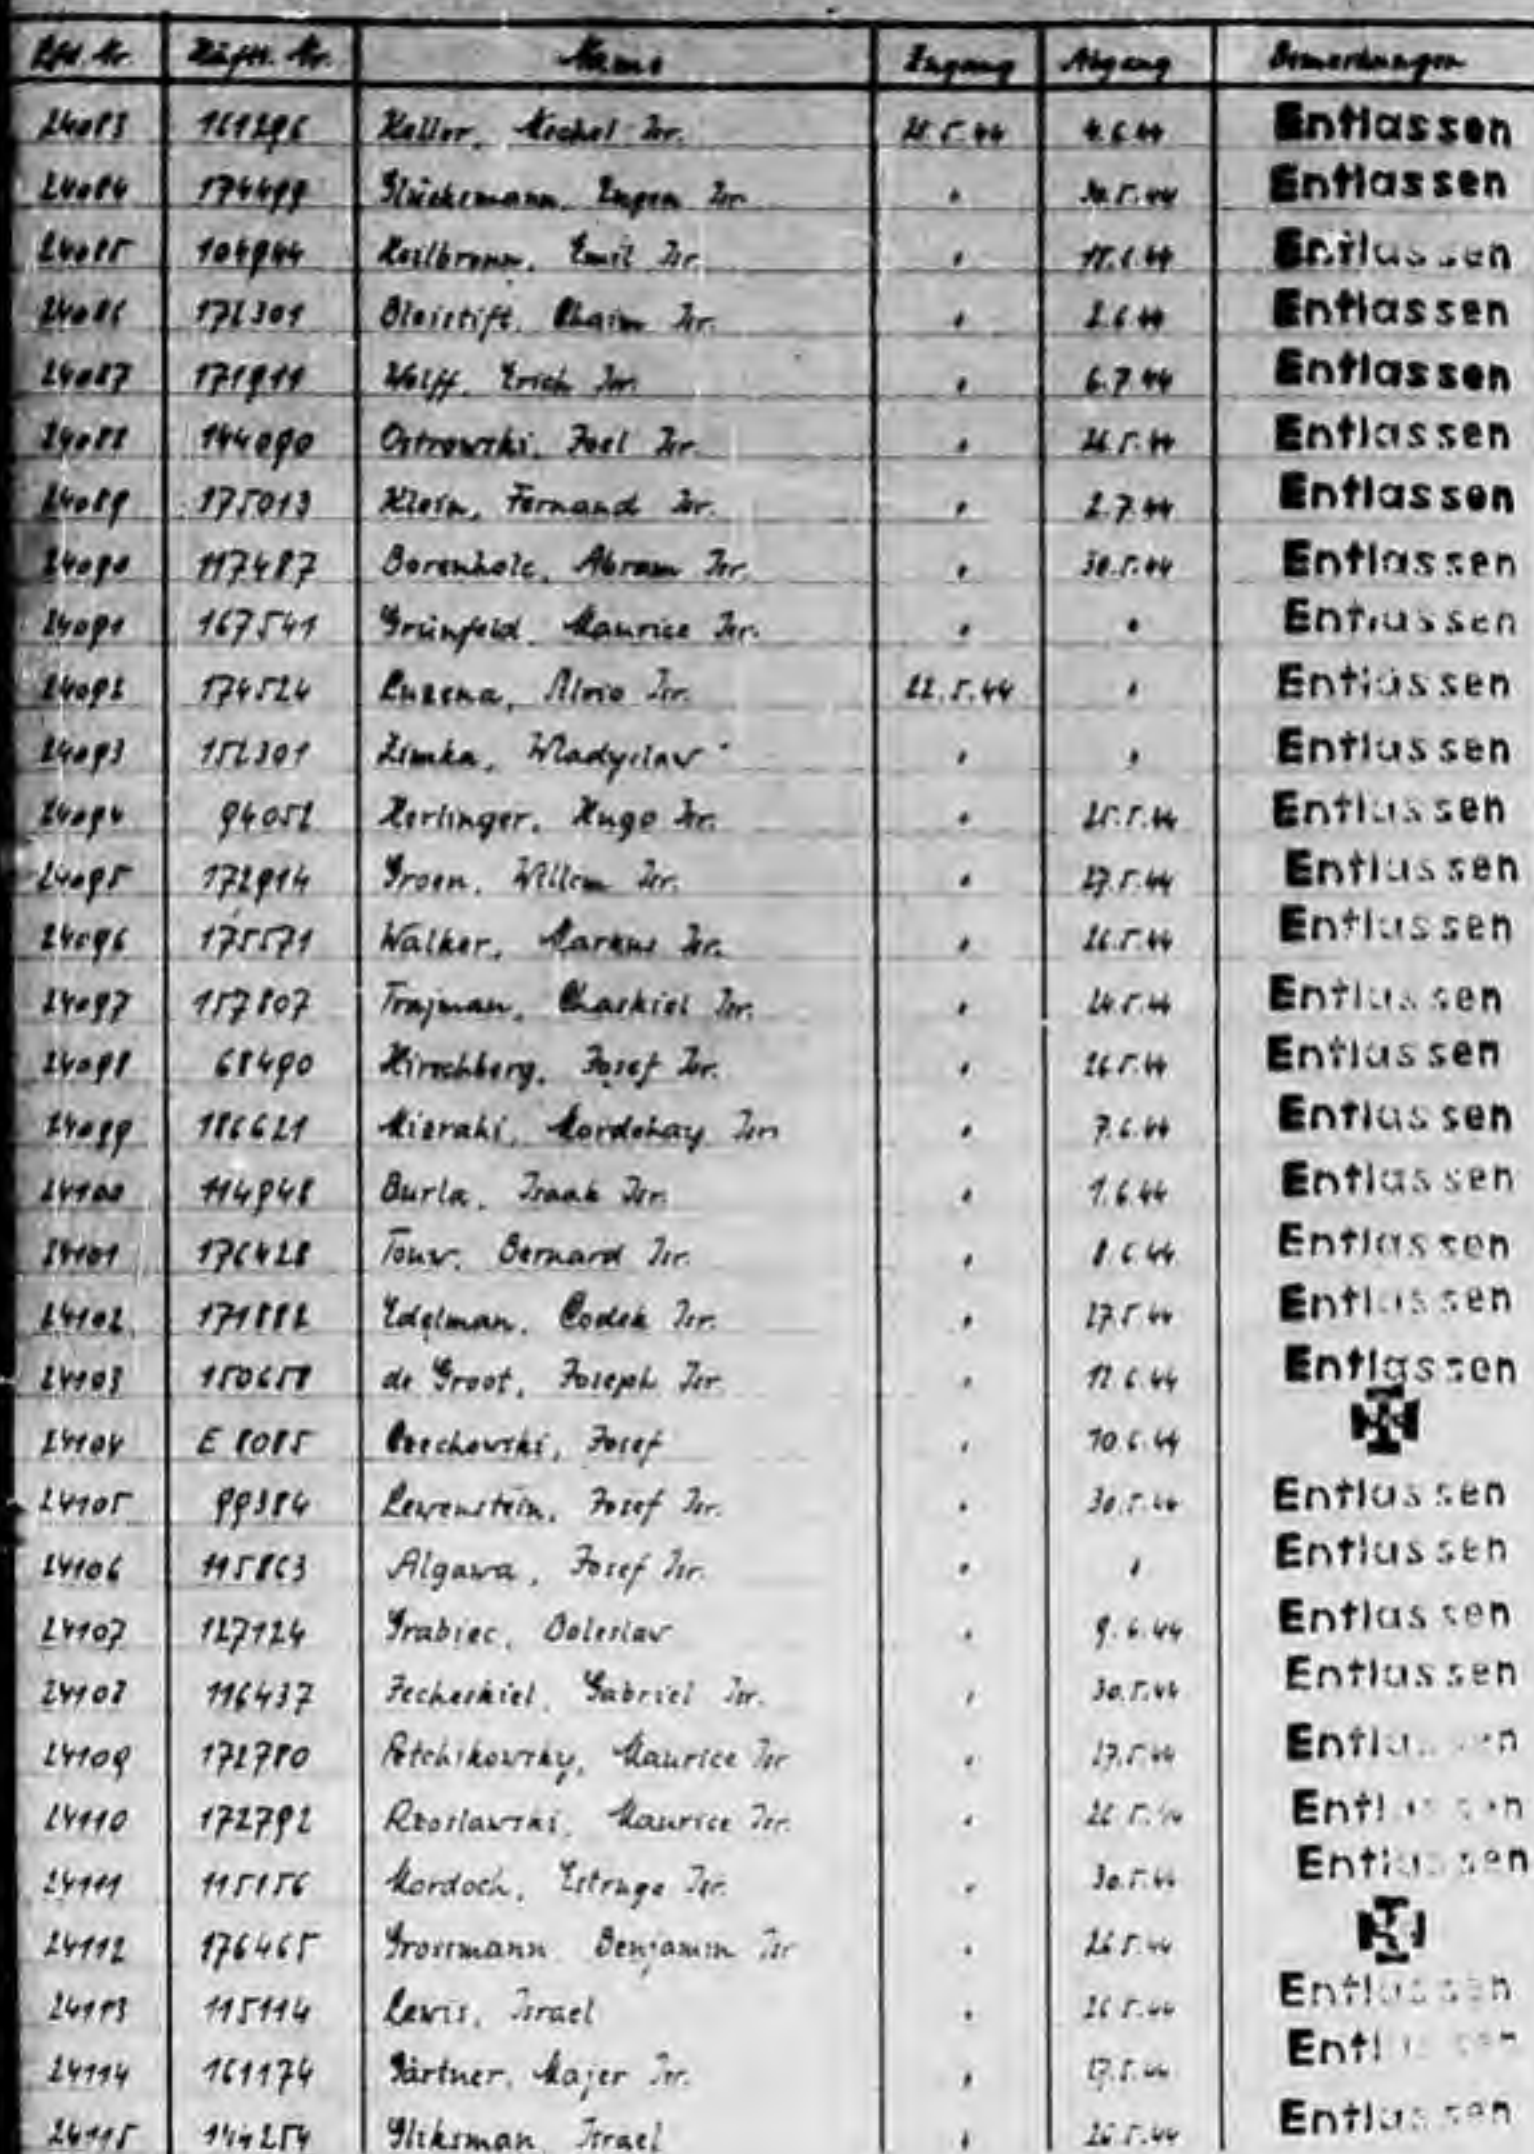 Lfd. Nr. Häftl. Nr. Name Zugang Abgang Bemerkungen
24083 161296 Keller, Mechel Isr. 21.5.44 4.6.44 Entlassen
24084 174499 Glücksmann, Eugen Isr. " 30.5.44 Entlassen
24085 104944 Heilbronn, Emil Isr. " Entlassen
24086 172301 Bleistift, Chaim Isr. " 2.6.44 Entlassen
24087 171911 Wolff, Erich Isr. " 6.7.44 Entlassen
24088 144090 Ostrowski, Joel Isr. " 26.5.44 Entlassen
24089 175013 Klein, Fernand Isr. " 2.7.44 Entlassen
24090 117487 Borenholc, Abram Isr. " 30.5.44 Entlassen
24091 167541 Grünfeld, Maurice Isr. " " Entlassen
24092 174524 Luzena, Isr. 22.5.44 " Entlassen
24093 152301 Zimka, Wladyslaw " " Entlassen
24094 94052 Herlinger, Hugo Isr. " 25.5.44 Entlassen
24095 172914 Groen, Willem Isr. " 27.5.44 Entlassen
24096 175571 Walker, Markus Isr. " 26.5.44 Entlassen
24097 157807 Trajman, Chaskiel Isr. " 24.5.44 Entlassen
24098 68490 Hirschberg, Josef Isr. " 26.5.44 Entlassen
24099 186621 Misrahi, Mordohay Isr. " 7.6.44 Entlassen
24100 114948 Burla, Isaak Isr. " 1.6.44 Entlassen
24101 176428 Touw, Bernard Isr. " 8.6.44 Entlassen
24102 171882 Edelman, Codek Isr. " 27.5.44 Entlassen
24103 150658 de Groot, Joseph Isr. " 12.6.44 Entlassen
24104 E 8085 Czechowski, Josef " 10.6.44
24105 99384 Lewenstein, Josef Isr. " 30.5.44 Entlassen
24106 115863 Algawa, Josef Isr. " " Entlassen
24107 127124 Grabiec, Boleslaw " 9.6.44 Entlassen
24108 116437 Jecheskiel, Gabriel Isr. " 30.5.44 Entlassen
24109 172780 Petchikowsky, Maurice Isr. " 27.5.44 Entlassen
24110 172792 Rzoslawski, Maurice Isr. " 26.5.44 Entlassen
24111 115156 Mordoch, Estrugo Isr. " 30.5.44 Entlassen
24112 176465 Grossmann Benjamin Isr. " 26.5.44
24113 115114 Lewis, Israel " 26.5.44 Entlassen
24114 161174 Gärtner, Majer Isr. " 27.5.44 Entlassen
24115 144254 Gliksman Israel " 26.5.44 Entlassen